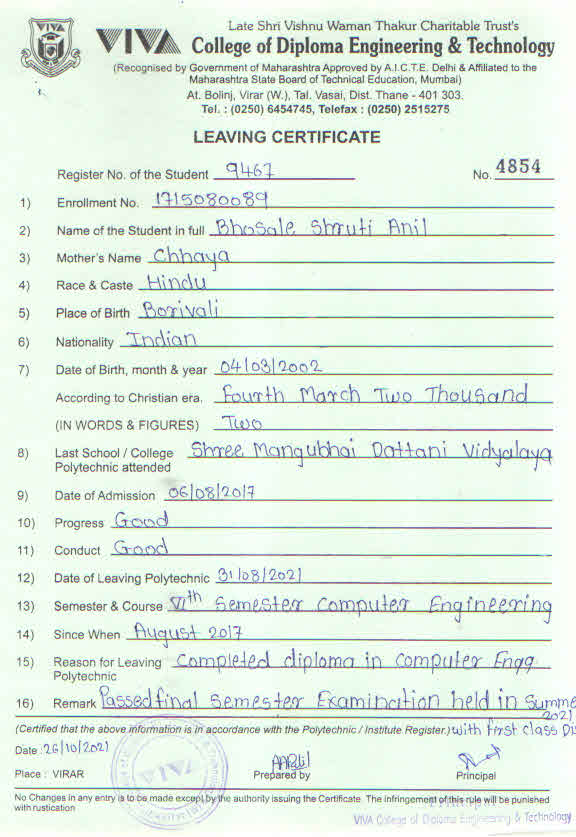 Late Shri Vishnu Waman Thakur Charitable Trust's
VIVA College of Diploma Engineering & Technology
(Recognised by Government of Maharashtra Approved by A.I.C.T.E. Delhi & Affiliated to the
Maharashtra State Board of Technical Education, Mumbai)
At. Bolinj, Virar (W.), Tal. Vasai, Dist. Thane - 401 303.
Tel. : (0250) 6454745, Telefax : (0250) 2515275
LEAVING CERTIFICATE
Register No. of the Student 9467 No. 4854
1) Enrollment No. 1715080089
2) Name of the Student in full Bhosale Shruti Anil
3) Mother's Name Chhaya
4) Race & Caste Hindu
5) Place of Birth Borivali
6) Nationality Indian
7) Date of Birth, month & year 04/03/2002
According to Christian era. Fourth March Two Thousand
(IN WORDS & FIGURES) Two
8) Last School / College Shree Mangubhai Dattani Vidyalaya
Polytechnic attended
9) Date of Admission 06/08/2017
10) Progress Good
11) Conduct Good
12) Date of Leaving Polytechnic 31/08/2021
13) Semester & Course VIth Semester Computer Engineering
14) Since When August 2017
15) Reason for Leaving Completed diploma in Computer Engg.
Polytechnic
16) Remark Passed final Semester Examination held in Summe
2021
(Certified that the above information is in accordance with the Polytechnic / Institute Register.) with first class Dis
Date : 26/10/2021
Place : VIRAR Prepared by Principal
No Changes in any entry is to be made except by the authority issuing the Certificate. The infringement of this rule will be punished
with rustication
VIVA College of Diploma Engineering & Technology
VIVA